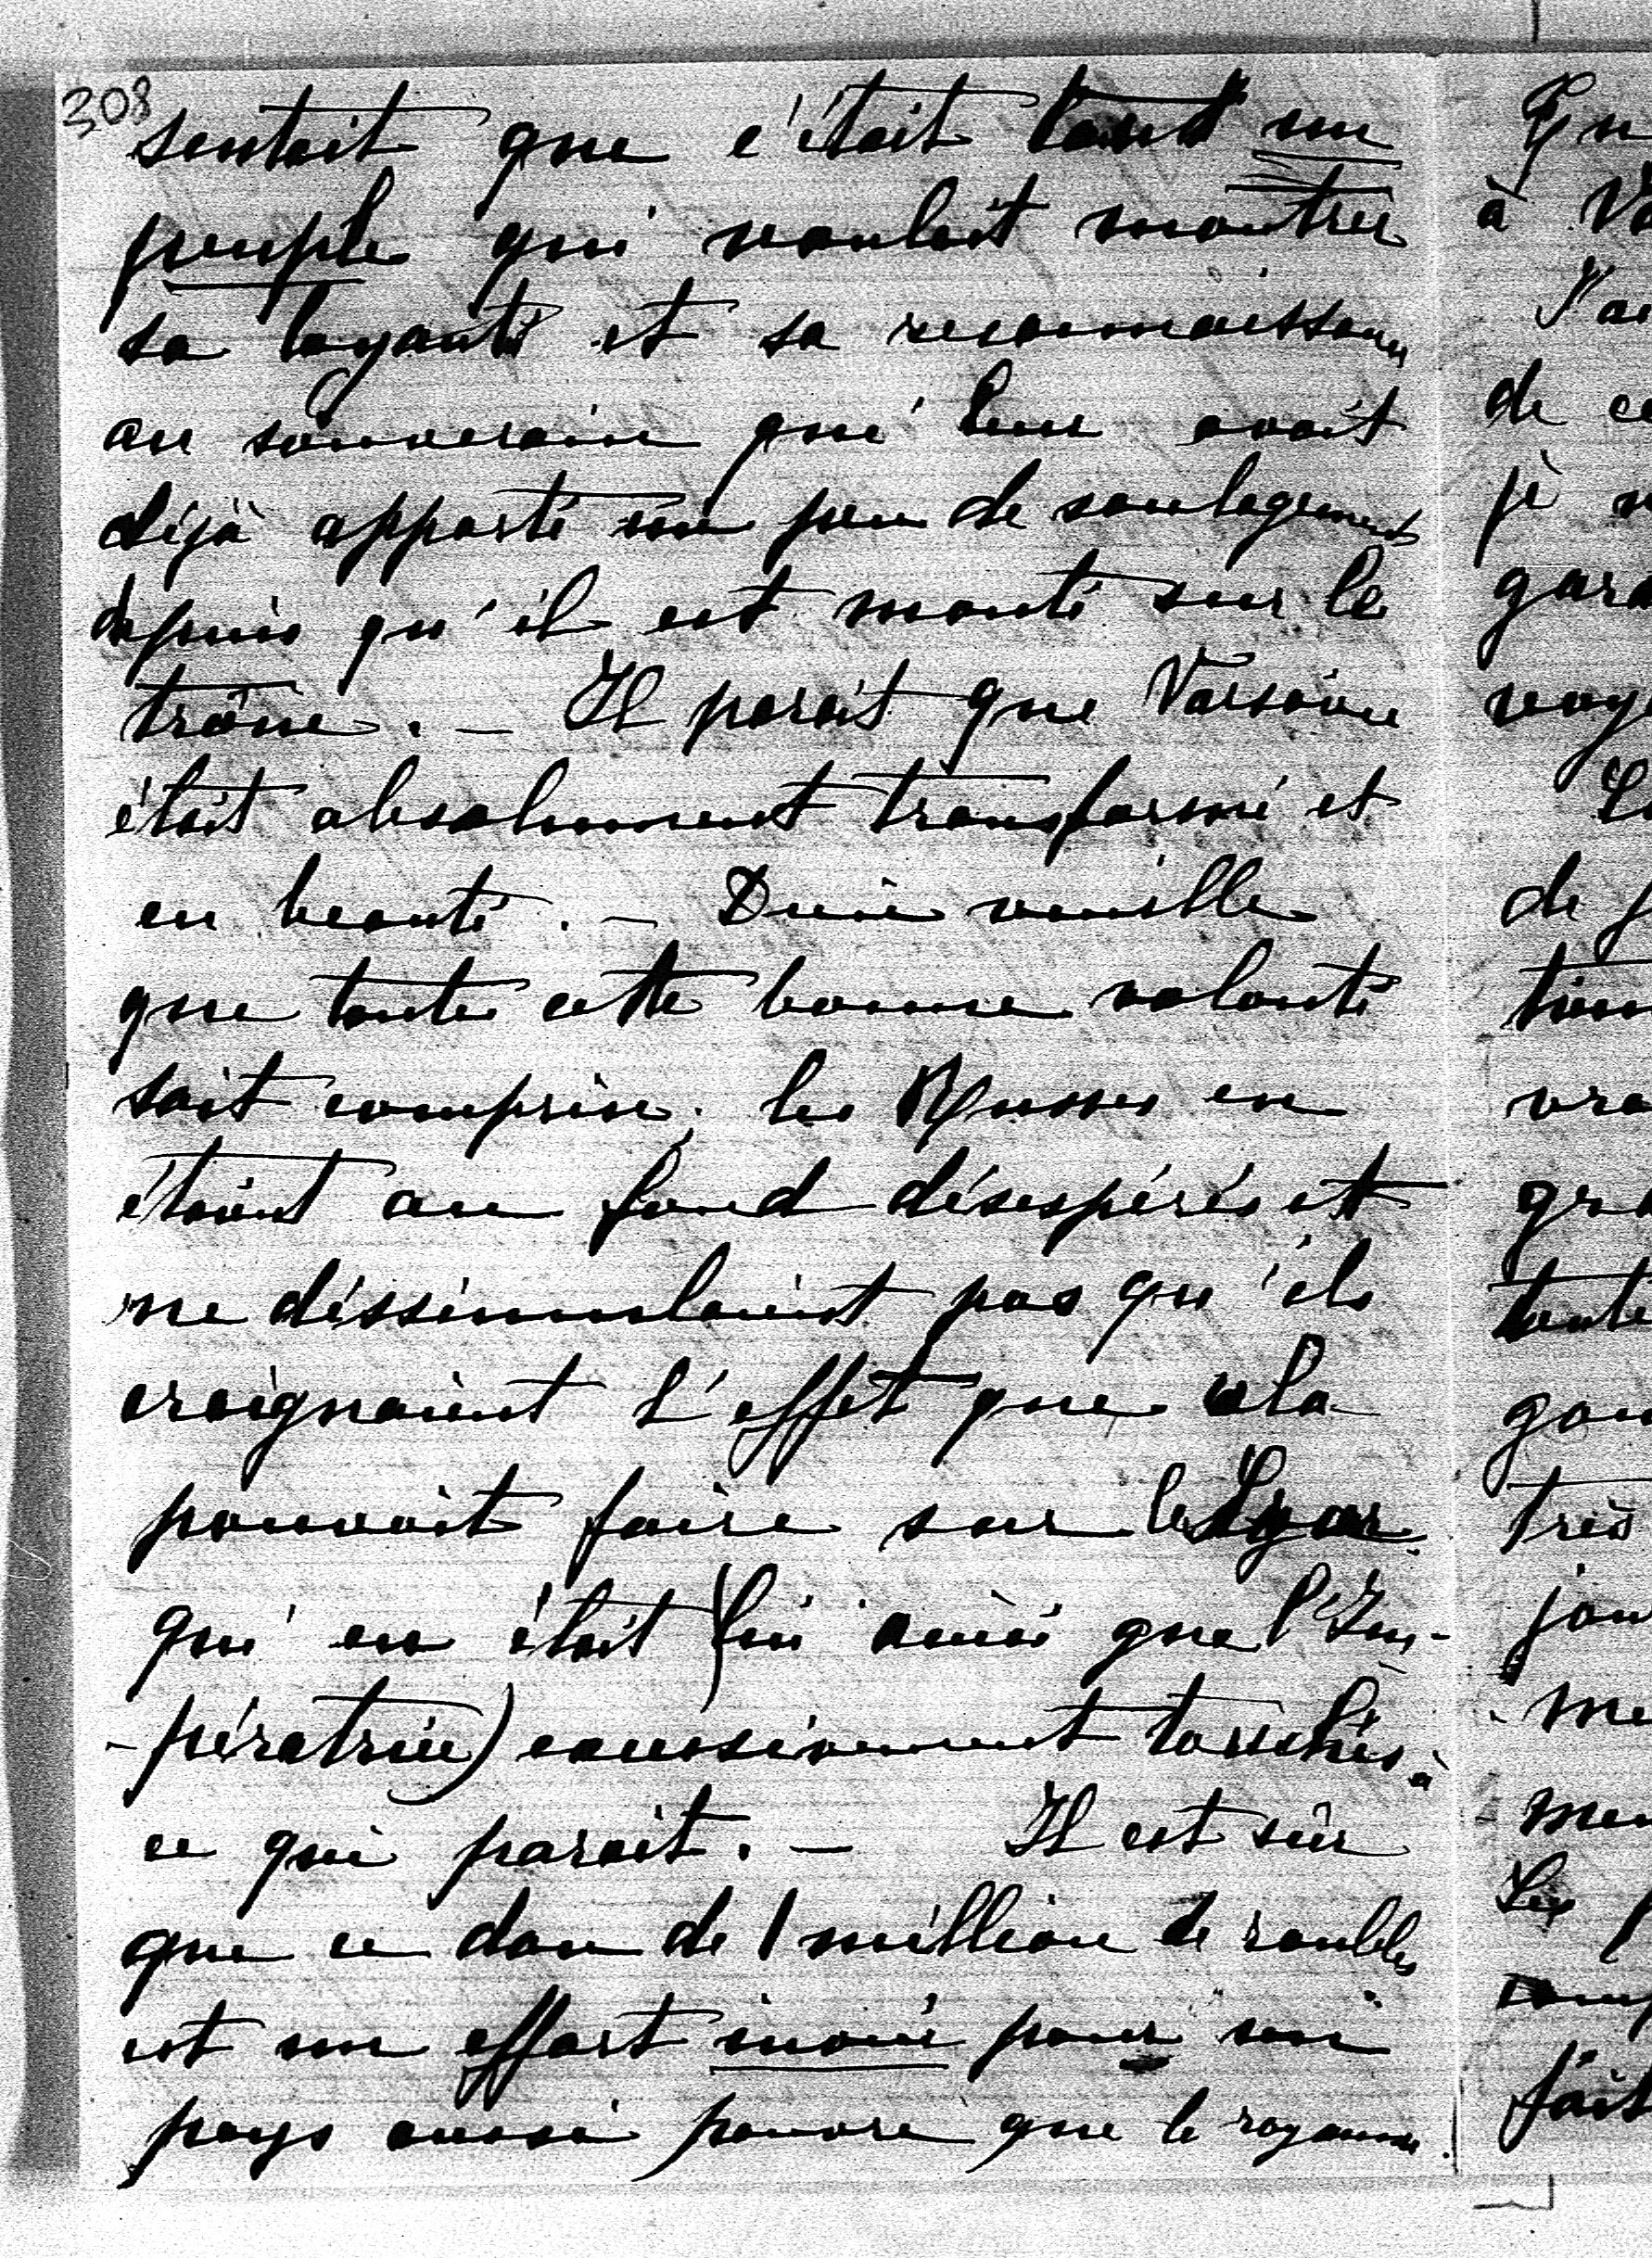 308
sentait que c'était tout un
peuple qui voulait montrer
sa loyauté et sa reconnaissance
au souverain qui leur avait
déjà apporté un peu de soulagement
depuis qu'il est monté sur le
trône. — Il parait que Varsovie
était absolument transformé et
en beauté. — Dieu veuille
que toute cette bonne volonté
soit comprise; les Russes en
étaient au fond désespérés et
ne dissimulaient pas qu'ils
craignaient l'effet que cela
pouvait faire sur le Tzar
qui en était (lui ainsi que l'Im-
-pératrice) excessivement touchés à
ce qui parait. — Il est sûr
que ce don de 1 million de roubles
est un effort inouï pour un
pays aussi pauvre que le royaume
à
J'ai
de
je
de
très
Les
fait